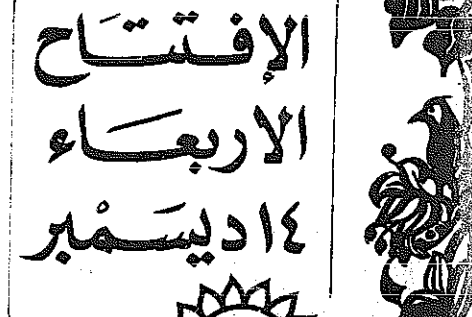 الإفتتاح
الاربعاء
١٤ ديسمبر